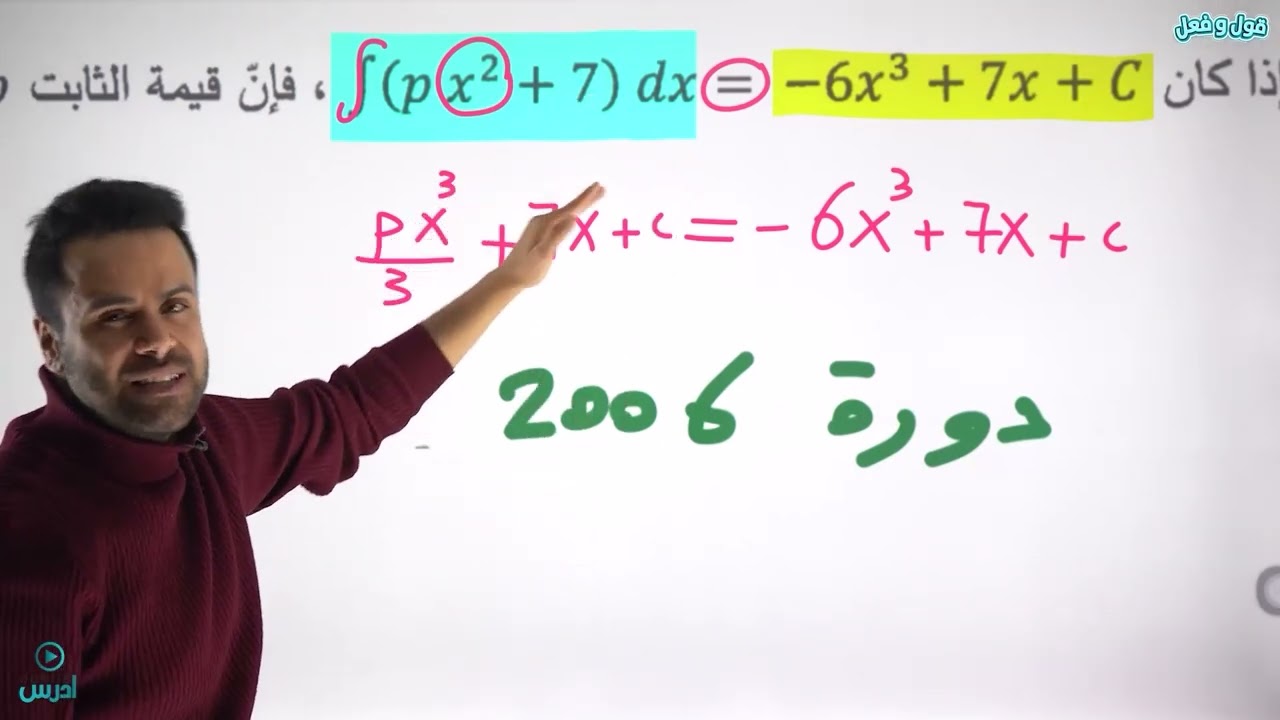 قول و فعل
إذا كان ∫(p x² + 7) dx = −6x³ + 7x + C ، فإنّ قيمة الثابت p
px³/3 + 7x + c = - 6x³ + 7x + c
دورة 2006
ادرس